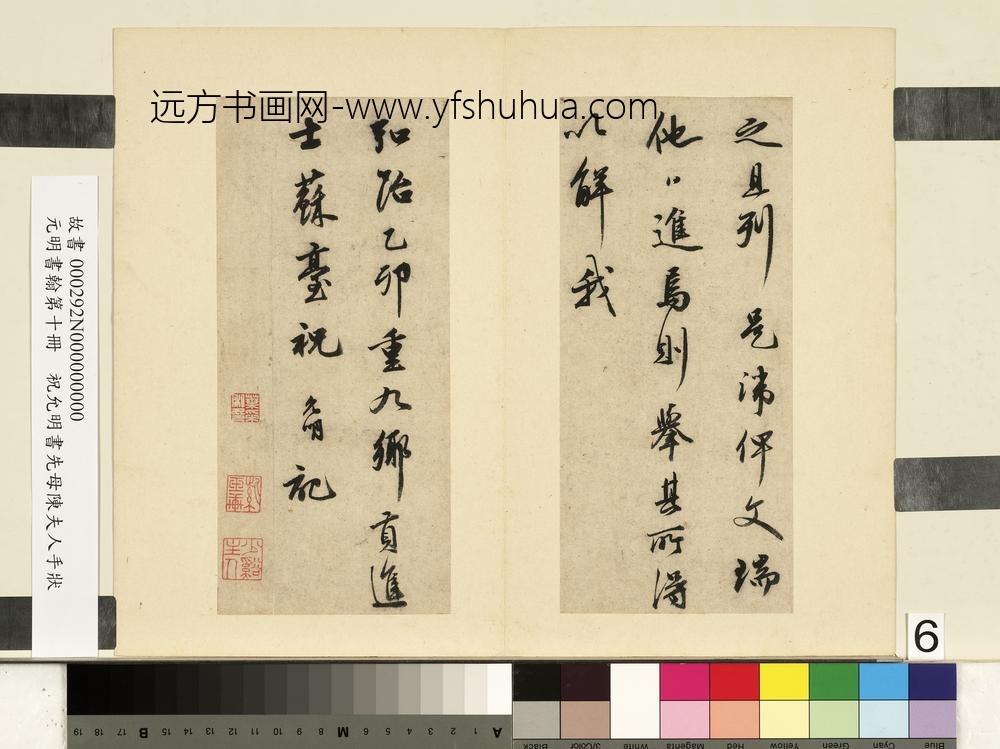 远方书画网-www.yfshuhua.com
之且列是沸俾文瑞
他日進焉則舉其所得
以解我
弘治乙卯重九鄉貢進
士蘇臺祝允明記
故書 000292N000000000
元明書翰第十冊 祝允明書先母陳夫人手狀
6
19 18 17 16 15 14 13 B 12 11 10 9 8 M 7 6 5 4 3 2 1 A
Black 3/Color White Magenta Red Yellow Green Cyan Blue